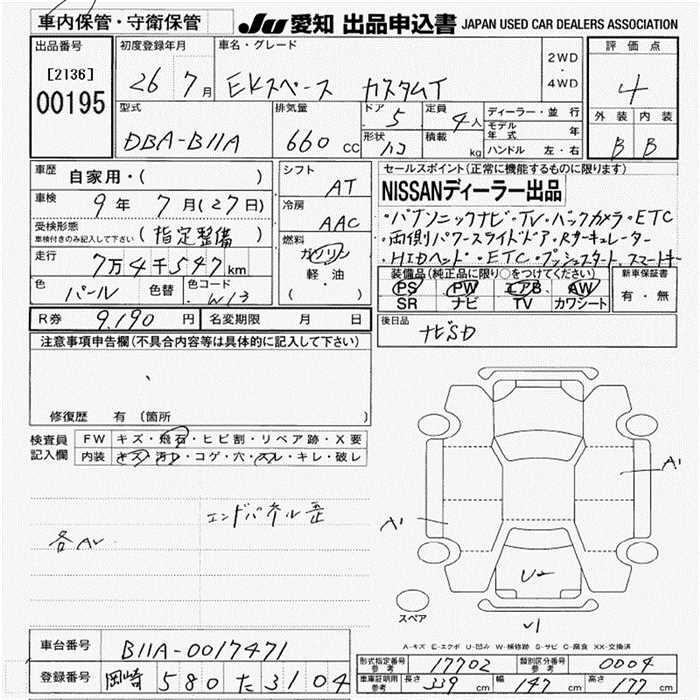 車内保管・守衛保管 JU 愛知 出品申込書 JAPAN USED CAR DEALERS ASSOCIATION
出品番号 初度登録年月 車名・グレード 2WD・4WD 評価点
[2136] 26 7月 EKスペース カスタムT 4
00195
型式 排気量 ドア 5 定員 4人 ディーラー・並行 外装 内装
DBA-B11A 660cc 形状 ハコ 積載 kg モデル年式 年 B B
ハンドル 左・右
車歴 自家用・( ) シフト AT セールスポイント(正常に機能するものに限ります)
車検 9年7月(27日) 冷房 AAC NISSANディーラー出品
受検形態 車検付きのみ記入して下さい (指定整備) ・パナソニックナビ・TV・バックカメラ・ETC
走行 7万4千547km 燃料 ガソリン 軽油 (・) ・両側パワースライドドア・Rサーキュレーター
・HIDヘッド・ETC・プッシュスタート、スマートキー
色 パール 色替 色コード W13 装備品(純正品に限り○をつけてください) 新車保証書
PS PW エアB AW 有・無
SR ナビ TV カワシート
R券 9,190円 名変期限 月 日 後日品
ナビSD
注意事項申告欄(不具合内容等は具体的に記入して下さい)
修復歴 有(箇所
検査員記入欄 FW キズ・飛石・ヒビ割・リペア跡・X要
内装 キズ・汚レ・コゲ・穴・スレ・キレ・破レ
エンドパネル歪
各AL
A1
A1
U2
スペア
V1
A-キズ E-エクボ U-凹み W-補修跡 S-サビ C-腐食 XX-交換済
車台番号 B11A-0017471
登録番号 岡崎 580 た 3104
形式指定番号 参考 17702 類別区分番号 参考 0004
車庫証明用 参考 長さ 339cm 幅 147cm 高さ 177cm